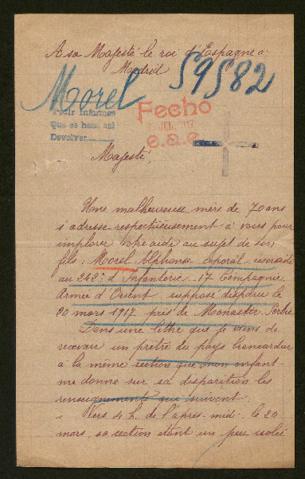 A sa Majesté le roi d'Espagne à
Madrid
59582
Morel
Pedir Informes
Que se haga asi
Devolver
Fecho
e.a.e.
Majesté
Une malheureuse mère de 70 ans
s'adresse respectueusement à vous pour
implorer votre aide au sujet de son
fils, Morel Alphonse caporal
au 242e d'Infanterie 17e Compagnie
Armée d'Orient supposé disparu le
20 mars 1917 près de Monastir Serbie
Dans une lettre que je viens de
recevoir un prêtre du pays brancardier
à la même section que mon enfant
me donne sur sa disparition les
renseignements qui suivent.
Vers 4 h. de l'après-midi le 20
mars, sa section étant un peu isolée